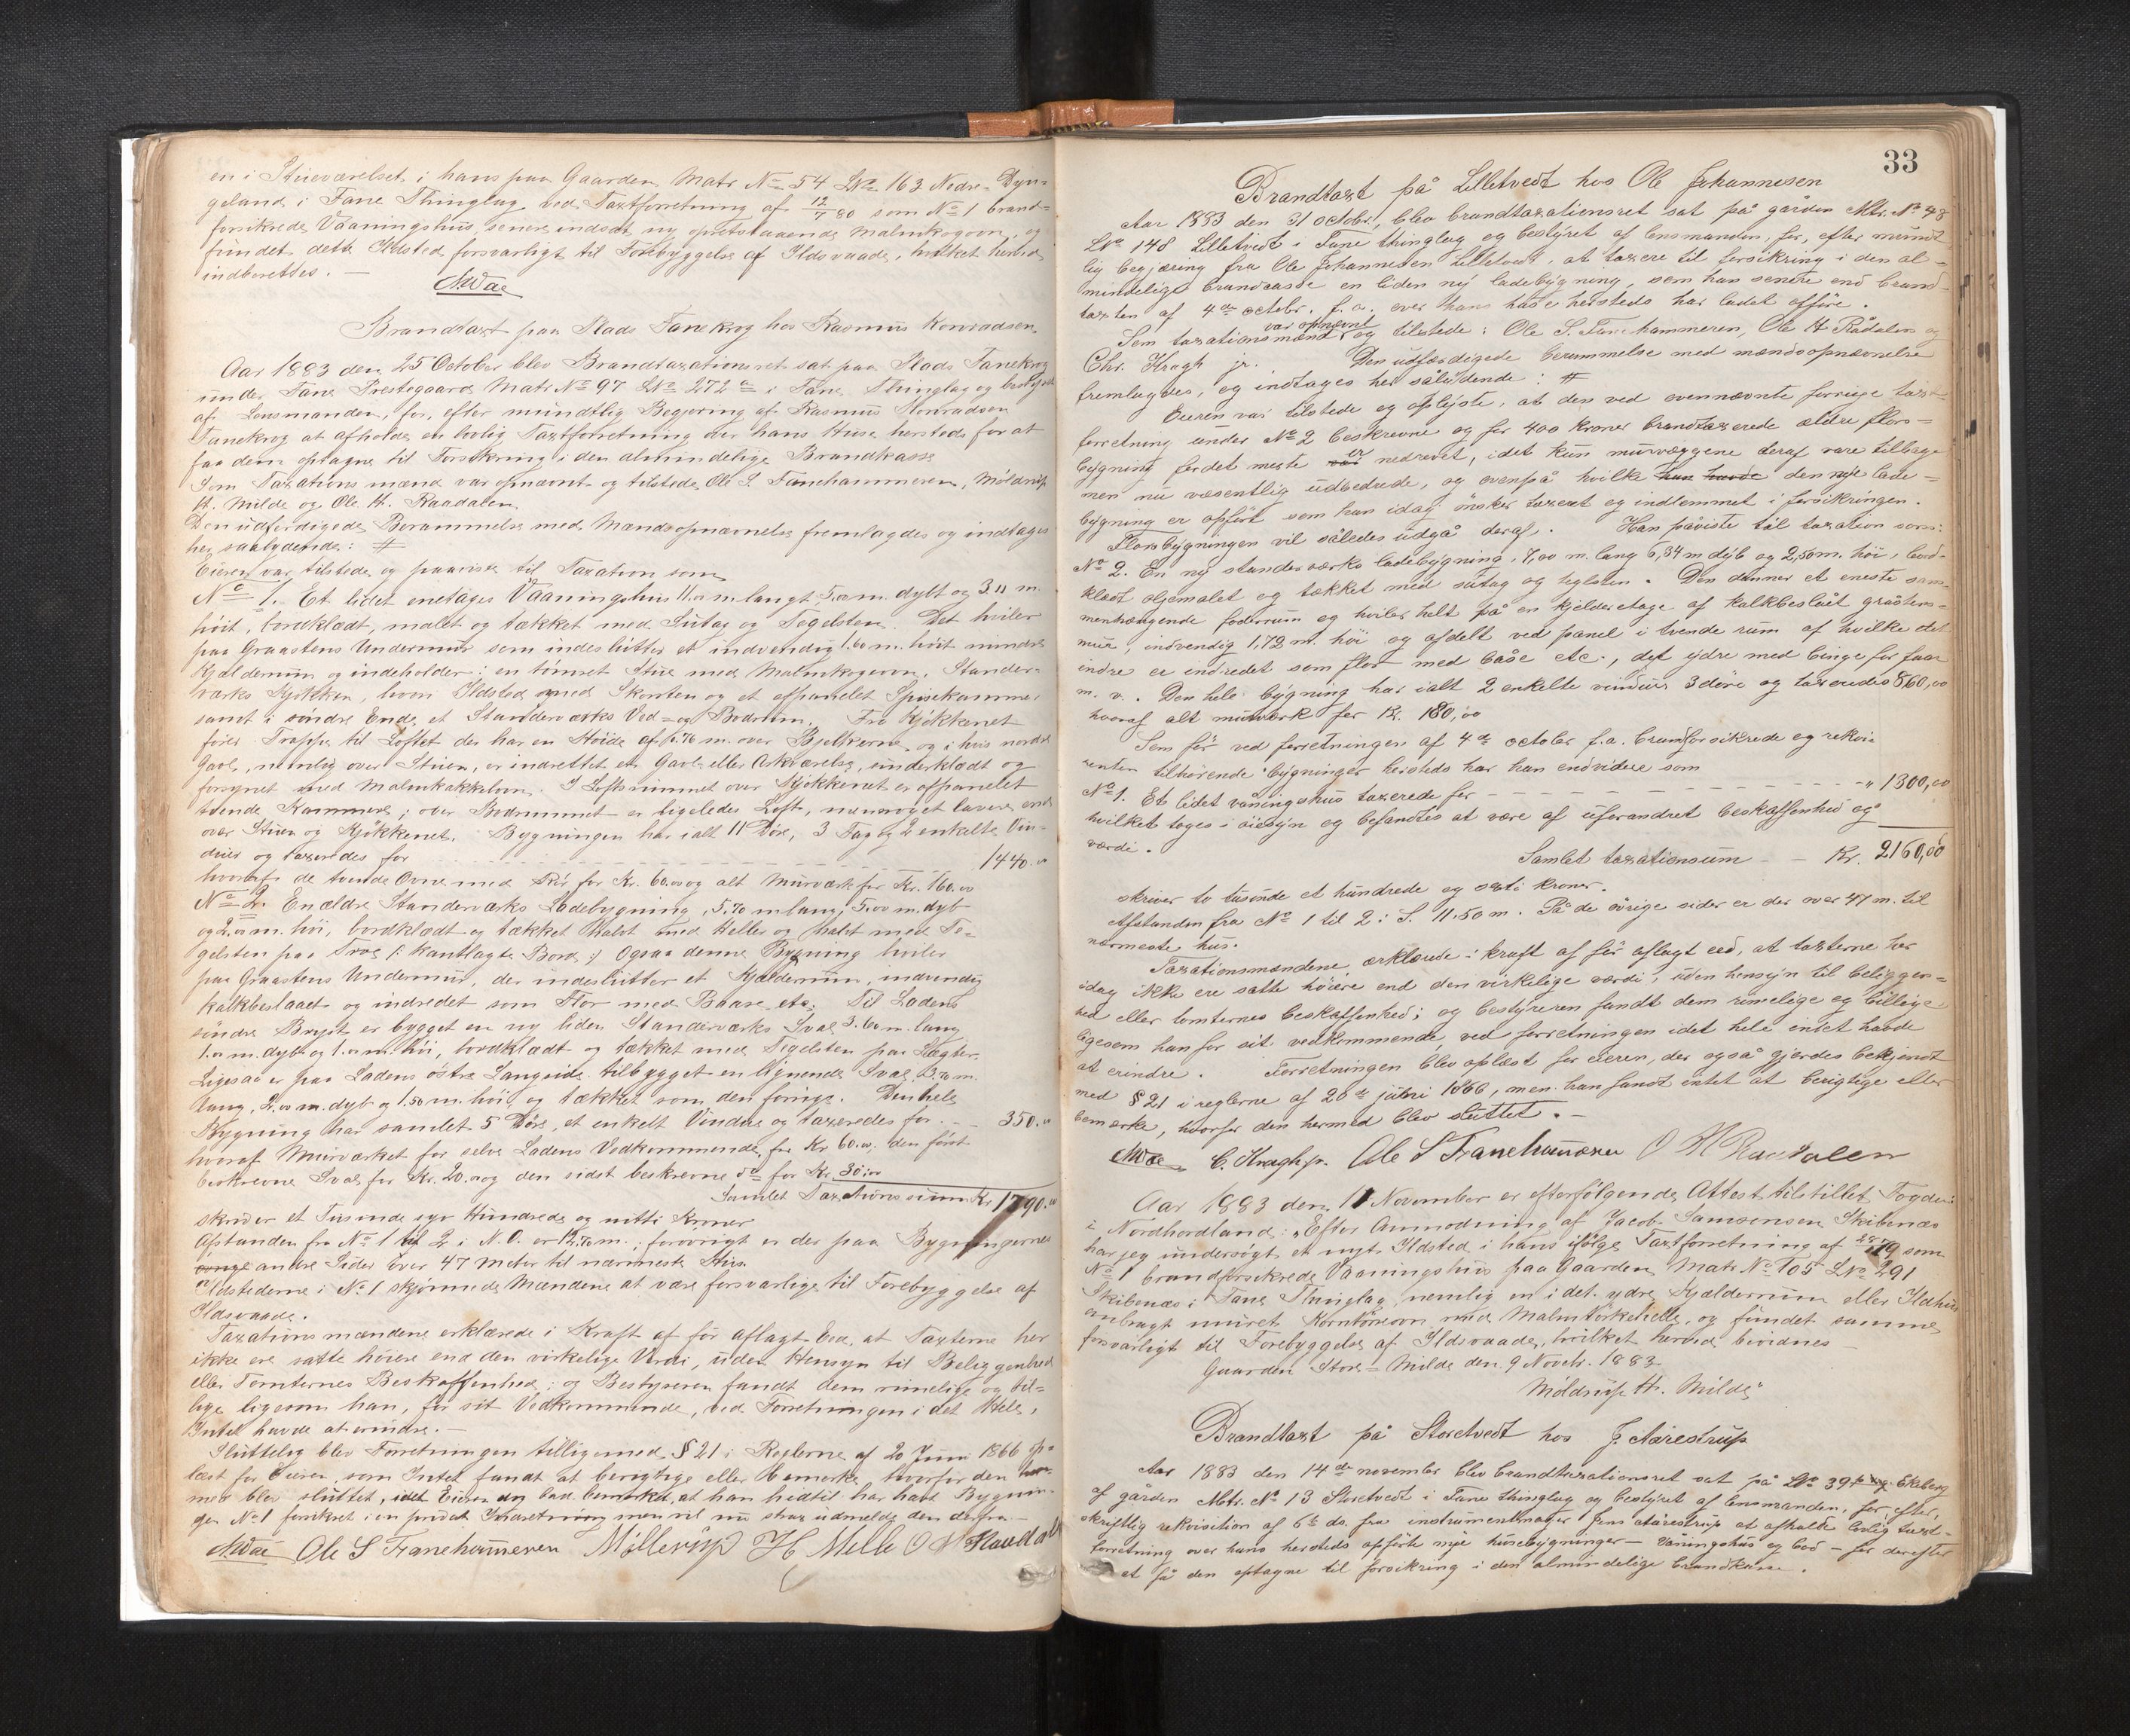 en i Stueværelset i hans paa Gaarden Matr No 54 LNo 163 Nedre-Dyn-
geland i Fane Thinglag ved Taxtforretning af 12/7 80 som No 1 brand-
forsikrede Vaaningshus, senere indsat ny opretstaaende Malmkogeovn, og
fundet dette Ildsted forsvarligt til Forebyggelse af Ildsvaade, hvilket herved
indberettes. —
Brandtaxt paa Plads Fanekrog hos Rasmus Konradsen.
Aar 1883 den 25 October blev Brandtaxationsret sat paa Plads Fanekrog
under Fane Prestegaard Matr. No 97 LNo 272 a i Fane Thinglag og bestyret
af Lensmanden, for, efter mundtlig Begjæring af Rasmus Konradsen
Fanekrog at afholde en lovlig Taxtforretning over hans Huse hersteds for at
faa dem optagne til Forsikring i den almindelige Brandkasse
Som Taxationsmænd var opnævnt og tilstede Ole S. Fanehammeren, Møldrup
H. Milde og Ole H. Raadalen.
Den udfærdigede Berammelse med Mandsopnævnelse fremlagdes og indtages
her saalydende: #
Eieren var tilstede og paaviste til Taxation som
No 1. Et lidet enetages Vaaningshus 11.00 m. langt, 5.00 m. dybt og 3.11 m.
høit, bordklædt, malet og tækket med Sutag og Tegelsten. Det hviler
paa Graastens Undermur som indeslutter et indvendig 1.60 m. høit mindre
Kjælderrum og indeholder: en tømret Stue med Malmkogeovn, Stander-
værks Kjøkken, hvori Ildsted med Skorsten og et afpanelet Spisekammer
samt i søndre Ende et Standerværks Ved- og Bodrum. Fra Kjøkkenet
fører Trappe til Loftet der har en Høide af 0.70 m. over Bjelkerne, og i hvis nordre
Gavl, nemlig over Stuen, er indrettet en Gavl- eller Arkværelse, underklædt og
forsynet med Malmkakkelovn. I Loftsrummet over Kjøkkenet er afpanelet
tvende Kammere; over Bodrummet er ligeledes Loft, men noget lavere end
over Stuen og Kjøkkenet. Bygningen har ialt 11 Døre, 3 Fag og 2 enkelte Vin-
duer og taxeredes for 1440.00
hvoraf de tvende Ovne med Rør for Kr. 60.00 og alt Murværk for Kr. 160.00
No 2. En ældre Standerværks Ladebygning, 5.70 m. lang, 5.00 m. dyb
og 2.00 m. høi, bordklædt og tækket halvt med Heller og halvt med Te-
gelsten paa Troe /: kantlagte Bord :/ Ogsaa denne Bygning hviler
paa Graastens Undermur, der indeslutter et Kjælderrum, indvendig
kalkbeslaaet og indredet som Flor med Baase etc. Til Ladens
søndre Bryst er bygget en ny liden Standerværks Sval 3.60 m. lang
1.00 m. dyb og 1.00 m. høi, bordklædt og tækket med Tegelsten paa Lægter.
Ligesaa er paa Ladens østre Langside tilbygget en lignende Sval, 3.70 m.
lang, 2.00 m. dyb og 1.50 m. høi og tækket som den forrige. Den hele
Bygning har samlet 5 Døre, et enkelt Vindue og taxeredes for 350.00
hvoraf Murværket for selve Ladens Vedkommende for Kr 60.00, den først
beskrevne Sval for Kr. 20.00 og den sidst beskrevne do for Kr 30.00
Samlet Taxationssum Kr 1790.00
skriver et Tusende syv Hundrede og nitti Kroner
Afstanden fra No 1 til 2 i N.O. er 12.70 m.; forøvrigt er der paa Bygningernes
andre Sider over 47 Meter til nærmeste Hus.
Ildstederne i No 1 skjønnede Mændene at være forsvarlige til Forebyggelse af
Ildsvaade.
Taxationsmændene erklærede i Kraft af før aflagt Eed, at Taxterne her
ikke ere satte høiere end den virkelige Verdi, uden Hensyn til Beliggenhed
eller Tomternes Beskaffenhed; og Bestyreren fandt dem rimelige og bil-
lige ligesom han, for sit Vedkommende, ved Forretningen i det Hele,
Intet havde at erindre. —
Sluttelig blev Forretningen tilligemed § 21 i Reglerne af 20 Juni 1866 op-
læst for Eieren, som Intet fandt at berigtige eller bemærke, hvorfor den her-
med blev sluttet, idet Eieren dog bad bemærket, at han hidtil har havt Bygnin-
gen No 1 forsikret i en privat Indretning men vil nu strax udmelde den derfra —
Ole S Fanehammeren Møllerup H Milde O H Raadal
33
Brandtaxt på Lilletvedt hos Ole Johannesen
Aar 1883 den 31 octobr, blev brandtaxationsret sat på gården Mtr. No 43
LNo 148 Lilletvedt i Fane thinglag og bestyret af lensmanden, for, efter mundt-
lig begjæring fra Ole Johannesen Lilletvedt, at taxere til forsikring i den al-
mindelige brandcasse en liden ny ladebygning, som han senere end brand-
taxten af 4de octobr. f.a. over hans huse hersteds har ladet opføre.
Som taxationsmænd var opnævnt og tilstede: Ole S. Fanehammeren, Ole H. Rådalen og
Chr. Kragh jr. Den udfærdigede berammelse med mandsopnævnelse
fremlagdes, og indtages her sålydende: #
Eieren var tilstede og oplyste, at den ved ovennævnte forrige taxt-
forretning under No 2 beskrevne og for 400 kroner brandtaxerede ældre flors-
bygning for det meste er nedrevet, idet kun murvæggene deraf vare tilbage
men nu væsentlig udbedrede, og ovenpå hvilke den nye lade-
bygning er opført som han idag ønsker taxeret og indlemmet i forsikringen.
Florsbygningen vil således udgå deraf. Han påviste til taxation som:
No 2. En ny standerværks ladebygning, 7,00 m. lang 6,34 m dyb og 2,50 m. høi, bord-
klædt oljemalet og tækket med sutag og teglsten. Den danner et eneste sam-
menhængende foderrum og hviler helt på en kjelderetage af kalkbeslået gråstens-
mur, indvendig 1,72 m. høi og afdelt ved panel i tvende rum af hvilke det
indre er indredet som flor med båse etc., det ydre med binge for faar
m. v. Den hele bygning har ialt 2 enkelte vinduer 3 døre og taxeredes 860,00
hvoraf alt murværk for Kr. 180,00
Som før ved forretningen af 4de october f.a. brandforsikrede og rekvi-
renten tilhørende bygninger hersteds har han endvidere som
No 1. Et lidet våningshus taxerede for " 1300,00
hvilket toges i øiesyn og befandtes at være af uforandret beskaffenhed og
værdi.
Samlet taxationsum — Kr. 2160,00
skriver to tusinde et hundrede og sexti kroner.
Afstanden fra No 1 til 2: S. 11.50 m. På de øvrige sider er der over 47 m. til
nærmeste hus.
Taxationsmændene erklærede i kraft af før aflagt eed, at taxterne her
idag ikke ere satte høiere end den virkelige værdi, uden hensyn til beliggen-
hed eller tomternes beskaffenhed; og bestyreren fandt dem rimelige og billige
ligesom han for sit vedkommende ved forretningen idet hele intet havde
at erindre. Forretningen blev oplæst for eieren, der også gjordes bekjendt
med § 21 i reglerne af 20de juni 1866, men han fandt intet at berigtige eller
bemærke, hvorfor den hermed blev sluttet. —
C. Kragh jr. Ole S Fanehammeren O H Raadalen
Aar 1883 den 11 November er efterfølgende Attest tilstillet Fogden
i Nordhordland: "Efter Anmodning af Jacob Samsonsen Skibenæs
har jeg undersøgt et nyt Ildsted i hans ifølge Taxtforretning af 79 som
No 1 brandforsikrede Vaaningshus paa Gaarden Matr No 105 LNo 291
Skibenæs i Fane Thinglag, nemlig en i det ydre Kjælderrum eller Ildhus
anbragt muret Korntørreovn med Malmtørkehelle, og fundet samme
forsvarligt til Forebyggelse af Ildsvaade, hvilket herved bevidnes —
Gaarden Store-Milde den 9 Novebr. 1883
Møldrup H. Milde"
Brandtaxt på Storetvedt hos J. Aarestrup
Aar 1883 den 14de november blev brandtaxationsret sat på LNo 39 Ekeberg
af gården Mtr. No 13 Storetvedt i Fane thinglag og bestyret af lensmanden, for, efter,
skriftlig rekvisition af 6te ds. fra instrumentmager Jens Aarestrup at afholde lovlig taxt-
forretning over hans hersteds opførte nye husebygninger — våningshus og bod — for derefter
at få den optagne til forsikring i den almindelige brandkasse.